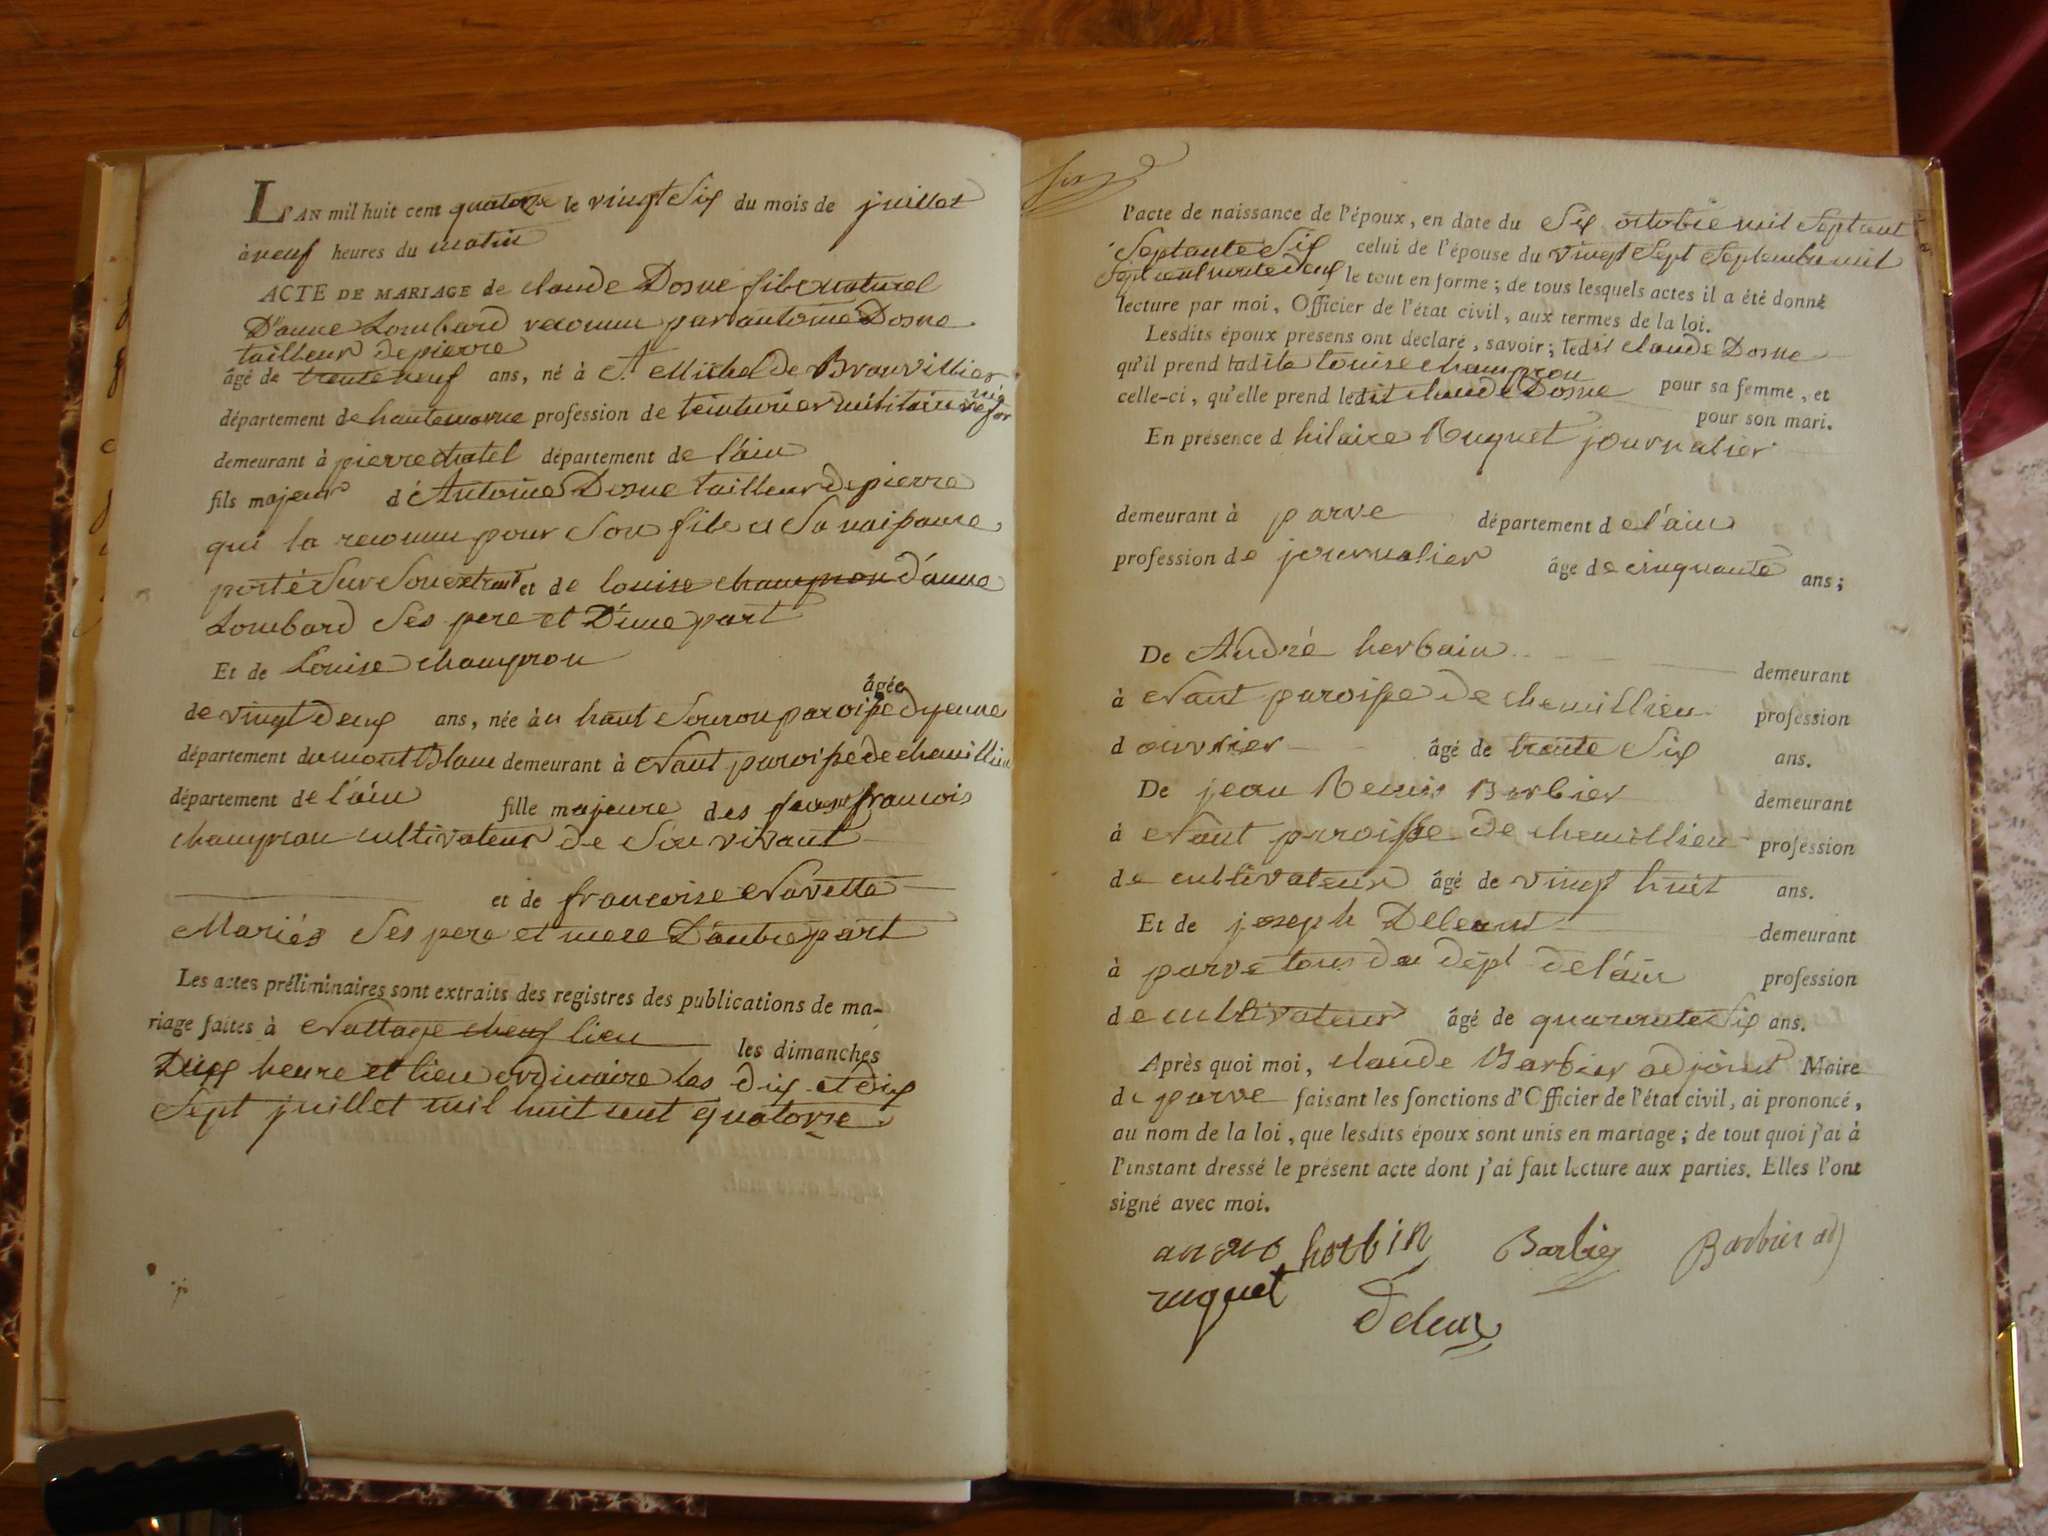 L'AN mil huit cent quatorze le vingt Six du mois de juillet
à neuf heures du matin
ACTE DE MARIAGE de claude Dosne fils naturel
D'anne Lombard reconnu par antoine Dosne
tailleur de pierre
âgé de trente neuf ans, né à St Michel de Brauvillier
département de haute marne profession de teinturier militaire réfor
mé
demeurant à pierre chatel département de l'ain
fils majeur d'Antoine Dosne tailleur de pierre
qui la reconnu pour Son fils a Sa naissance
porté Sur Son extrait et de louise champron d'anne
Lombard Ses pere et D'une part
Et de Louise champron
âgée
de vingt deux ans, née à u haut Souron paroisse dyenne
département du mont Blanc demeurant à Nant paroisse de chemillieu
département de l'ain fille majeure des françois
champron cultivateur de Son vivant
et de francoise Navette
Mariés Ses pere et mere D'autre part
Les actes préliminaires sont extraits des registres des publications de ma-
riage faites à Nattage lieu les dimanches
heure et lieu ordinaire les dix et dix
Sept juillet mil huit cent quatorze.
l'acte de naissance de l'époux, en date du Six octobre mil Sept cent
Septante Six celui de l'épouse du vingt Sept Septembre mil
Sept cent nonte deux le tout en forme ; de tous lesquels actes il a été donné
lecture par moi, Officier de l'état civil, aux termes de la loi.
Lesdits époux présens ont déclaré, savoir ; ledit claude Dosne
qu'il prend ladite louise champron
celle-ci, qu'elle prend ledit claude Dosne pour sa femme, et
pour son mari.
En présence d hilaire Ruquet journalier
demeurant à parve département d el'ain
profession de journalier âgé de cinquante ans ;
De André herbain demeurant
à Nant paroisse de chemillieu profession
d ouvrier âgé de trente Six ans.
De jean Remis Barbier demeurant
à Nant paroisse de chemillieu profession
de cultivateur âgé de vingt huit ans.
Et de joseph demeurant
à parve tous du dépt de l'ain profession
de cultivateur âgé de quarante Six ans.
Après quoi moi, claude Barbier adjoint Maire
de parve faisant les fonctions d'Officier de l'état civil, ai prononcé,
au nom de la loi, que lesdits époux sont unis en mariage ; de tout quoi j'ai à
l'instant dressé le présent acte dont j'ai fait lecture aux parties. Elles l'ont
signé avec moi.
herbin Barbier Barbier adj
ruquet